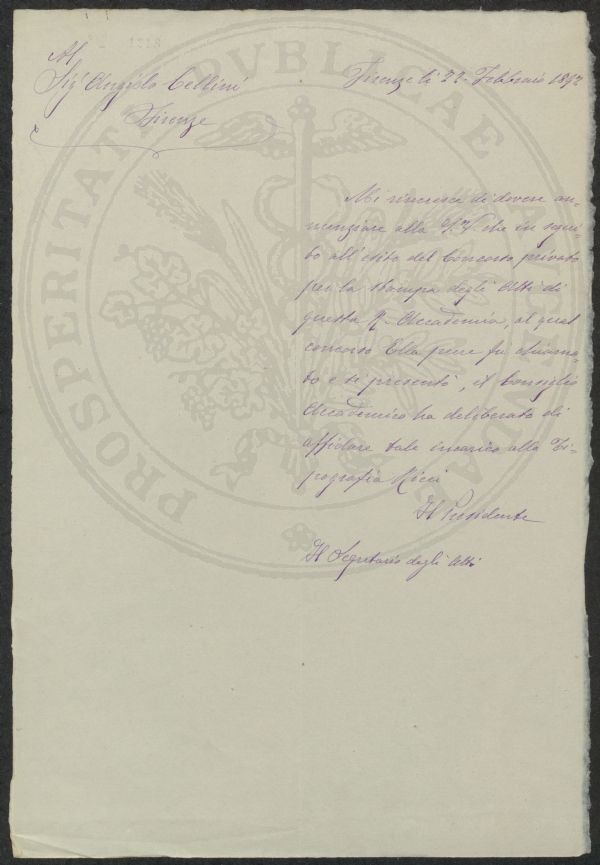 Al
Sig.r Angiolo Cellini
Firenze
Firenze li 22 Febbraio 1892
Mi rincresce di dovere an-
nunziare alla S.V. che in segui-
to all'esito del Concorso privato
per la stampa degli Atti di
questa R. Accademia, al qual
concorso Ella pure fu chiama-
to e si presentò, il Consiglio
Accademico ha deliberato di
affidare tale incarico alla Ti-
pografia Ricci
Il Presidente
Il Segretario degli Atti
PROSPERITATI PVBLICAE